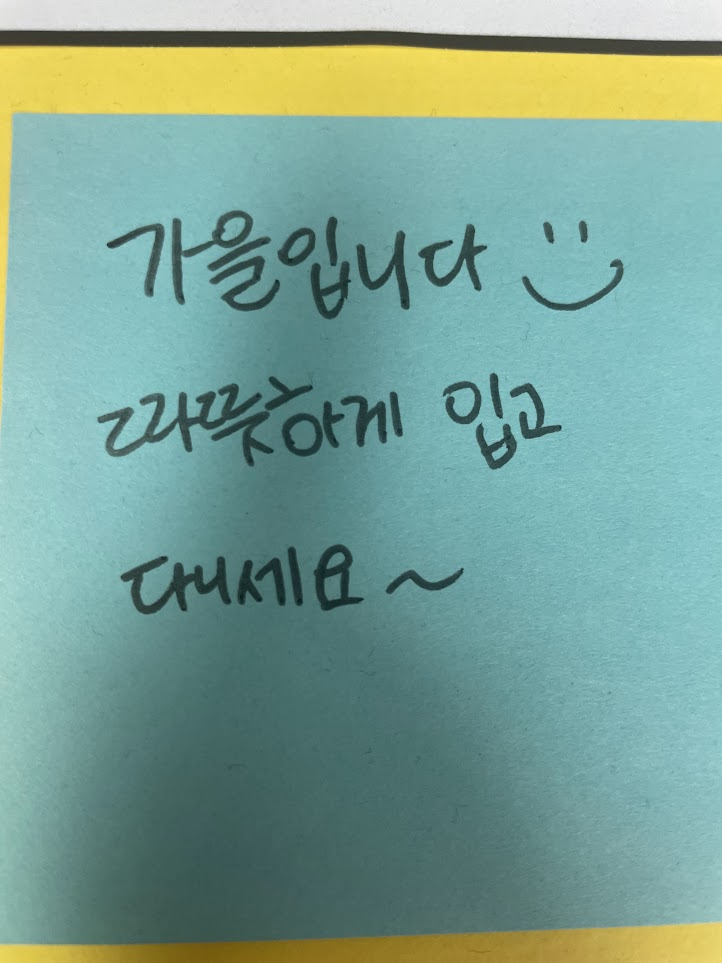 가을입니다 :)
따뜻하게 입고
다니세요~